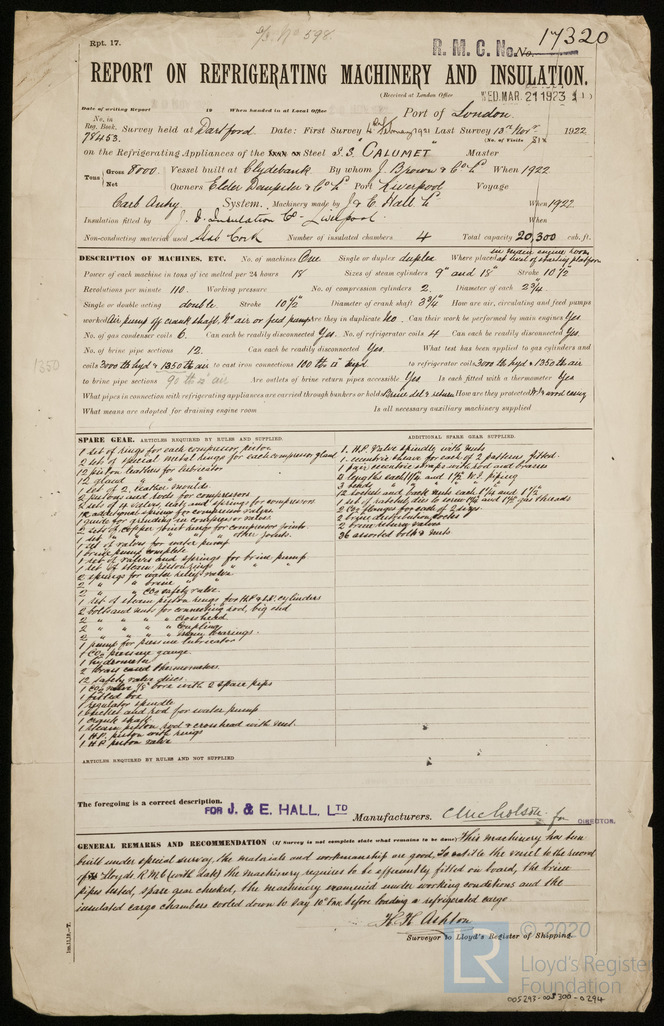 Rpt. 17.
R. M. C. No. No. 17320
REPORT ON REFRIGERATING MACHINERY AND INSULATION.
(Received at London Office WED. MAR. 21 1923
Date of writing Report 19 When handed in at Local Office Port of London.
No. in Reg. Book. 78453. Survey held at Dartford. Date: First Survey Last Survey 13th Novr 1922
(No. of Visits
on the Refrigerating Appliances of the Steel S.S. "CALUMET" Master
Tons Gross 8000. Vessel built at Clydebank By whom J. Brown & Co Ld When 1922
Net Owners Elder Dempster & Co Ld Port Liverpool Voyage
Carb Anhy System. Machinery made by J & E Hall Ld When 1922
Insulation fitted by Insulation Co. Liverpool. When
Non-conducting material used Slab Cork Number of insulated chambers 4 Total capacity 20,300 cub. ft.
DESCRIPTION OF MACHINES, ETC. No. of machines One Single or duplex duplex Where placed in main engine room at level of starting platform
Power of each machine in tons of ice melted per 24 hours 18 Sizes of steam cylinders 9" and 18" Stroke 10 1/2
Revolutions per minute 110. Working pressure No. of compression cylinders 2. Diameter of each 2 3/4"
Single or double acting double. Stroke 10 1/2" Diameter of crank shaft 3 3/4" How are air, circulating and feed pumps
worked Air pump off crank shaft, No air or feed pump Are they in duplicate No. Can their work be performed by main engines Yes
No. of gas condenser coils 6. Can each be readily disconnected Yes. No. of refrigerator coils 4 Can each be readily disconnected Yes
No. of brine pipe sections 12. Can each be readily disconnected Yes. What test has been applied to gas cylinders and
1350
coils 3000 lbs hyd & 1350 lbs air to cast iron connections 100 lbs hyd to refrigerator coils 3000 lbs hyd & 1350 air
to brine pipe sections 90 lbs air Are outlets of brine return pipes accessible Yes Is each fitted with a thermometer Yes
What pipes in connection with refrigerating appliances are carried through bunkers or holds Brine del & return How are they protected wood casing
What means are adopted for draining engine room Is all necessary auxiliary machinery supplied
SPARE GEAR. ARTICLES REQUIRED BY RULES AND SUPPLIED. ADDITIONAL SPARE GEAR SUPPLIED.
1 set of rings for each compressor piston
2 sets of special metal rings for each compressor gland
12 piston leathers for lubricator
12 gland " " "
1 set of 2 leather moulds
2 pistons and rods for compressors
2 sets of 4 valves, seats and springs for compressors
12 additional springs for compressor valves
1 guide for grinding in compressor valves
2 sets of copper joint rings for compressor joints
1 set " " " " other joints.
1 set of valves for water pump
1 brine pump complete
1 set of valves and springs for brine pump
1 set of steam piston rings " " "
2 springs for water relief valve
2 " " brine " "
2 " " CO2 safety valve.
1 set of steam piston rings for H.P & L.P. cylinders
2 bolts and nuts for connecting rod, big end
2 " " " " crosshead
2 " " " " coupling
2 " " " " main bearings.
1 pump for pressure lubricator
1 CO2 pressure gauge.
1 hydrometer
2 brass cased thermometers.
12 safety valve discs.
1 CO2 valve 3/8" bore with 2 spare pips
1 filled box
1 regulator spindle
1 bucket and rod for water pump
1 crank shaft
1 steam piston, rod & crosshead with nut.
1 H.P. piston with rings
1 H.P. piston valve
1. H.P. valve spindle with nuts
1. eccentric sheave for each of 2 patterns fitted.
1 pair eccentric straps with rod and brasses
12 sockets and back nuts each 1 1/4 and 1 1/2
2 CO2 flanges for each of 2 sizes
2 brine distribution cocks
2 brine return valves
36 assorted bolts & nuts
ARTICLES REQUIRED BY RULES AND NOT SUPPLIED
The foregoing is a correct description.
FOR J. & E. HALL, LTD Manufacturers. C. Nicholson for DIRECTOR.
GENERAL REMARKS AND RECOMMENDATION (If Survey is not complete state what remains to be done) This machinery has been
built under special survey, the materials and workmanship are good. To entitle the vessel to the record
of Lloyds R.M.C. (with date) the machinery requires to be efficiently fitted on board, the brine
pipes tested, spare gear checked, the machinery examined under working conditions and the
insulated cargo chambers cooled down to say 10° Fah. before loading a refrigerated cargo.
H. H. Ashton
Surveyor to Lloyd's Register of Shipping.
LR © 2020
Lloyd's Register
Foundation
005293-005300-0294